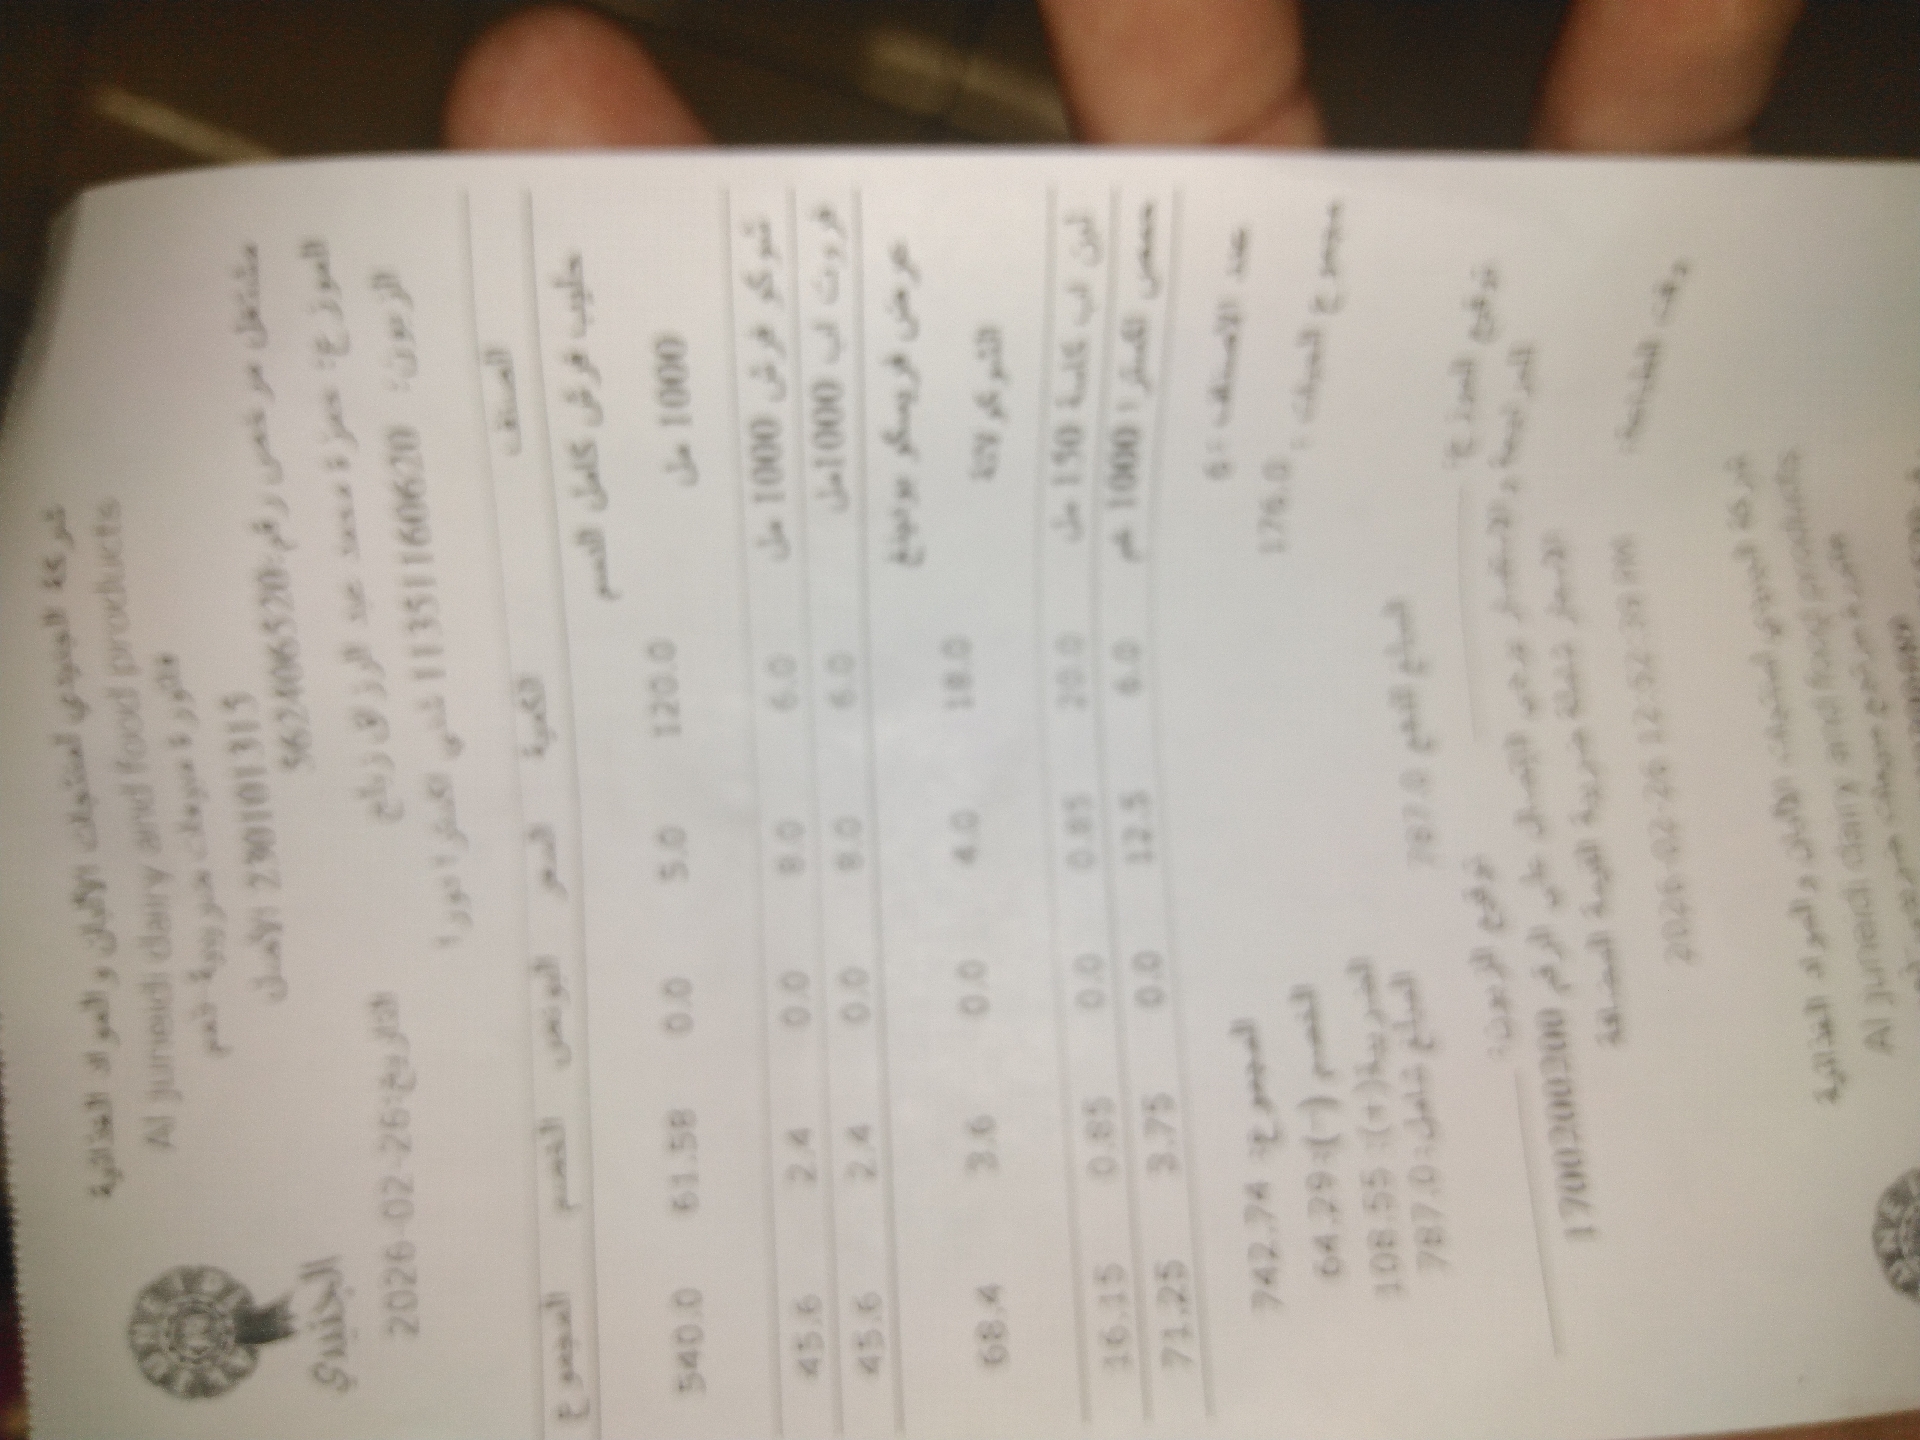 شركة الجنيدي لمنتجات الألبان والمواد الغذائية
Al juneidi dairy and food products
فاتورة مبيعات ضريبية رقم
2301101315 الأصل
مشتغل مرخص رقم: 562406520
الموزع: حمزة محمد عبد الرزاق
الزبون: 1135111606620
الجنيدي
التاريخ: 2026-02-26
الصنف الكمية السعر البونص الخصم المجموع
حليب فرش كامل الدسم
1000 مل 120.0 5.0 0.0 61.58 540.0
شوكو فرش 1000 مل 6.0 8.0 0.0 2.4 45.6
فروت اب 1000مل 6.0 8.0 0.0 2.4 45.6
عرض فريسكو بودينغ
الشوكولاتة 18.0 4.0 0.0 3.6 68.4
لبن اب كاسة 150 مل 20.0 0.85 0.0 0.85 16.15
حمص اكسترا 1000 غم 6.0 12.5 0.0 3.75 71.25
عدد الأصناف: 6
مجموع الحبات: 176.0
المجموع: 742.74
الخصم (-): 64.29
الضريبة (+): 108.55
المبلغ شامل: 787.0
المبلغ للدفع 787.0
توقيع الموزع:
توقيع الزبون:
للمراجعة والاستفسار يرجى الاتصال على الرقم 1700200300
الأسعار شاملة ضريبة القيمة المضافة
وقت الطباعة: 2026-02-26 12:52:39 PM
شركة الجنيدي لمنتجات الألبان والمواد الغذائية
Al juneidi dairy and food products